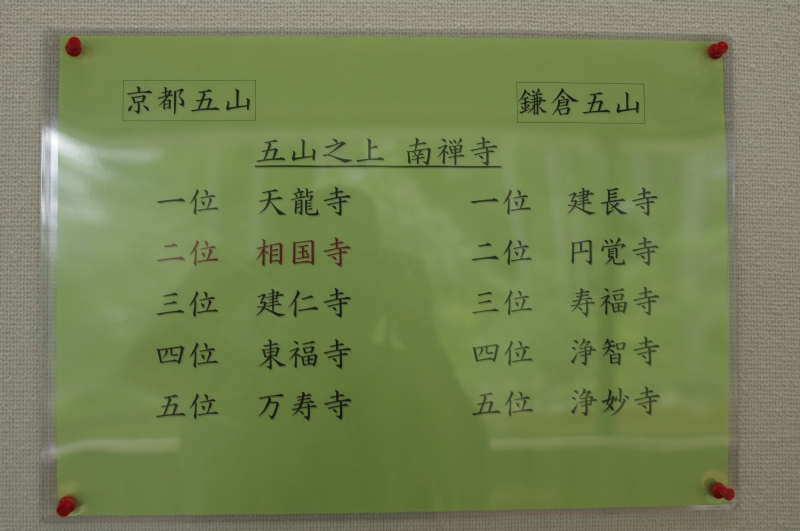 京都五山 鎌倉五山
五山之上 南禅寺
一位 天龍寺 一位 建長寺
二位 相国寺 二位 円覚寺
三位 建仁寺 三位 寿福寺
四位 東福寺 四位 浄智寺
五位 万寿寺 五位 浄妙寺